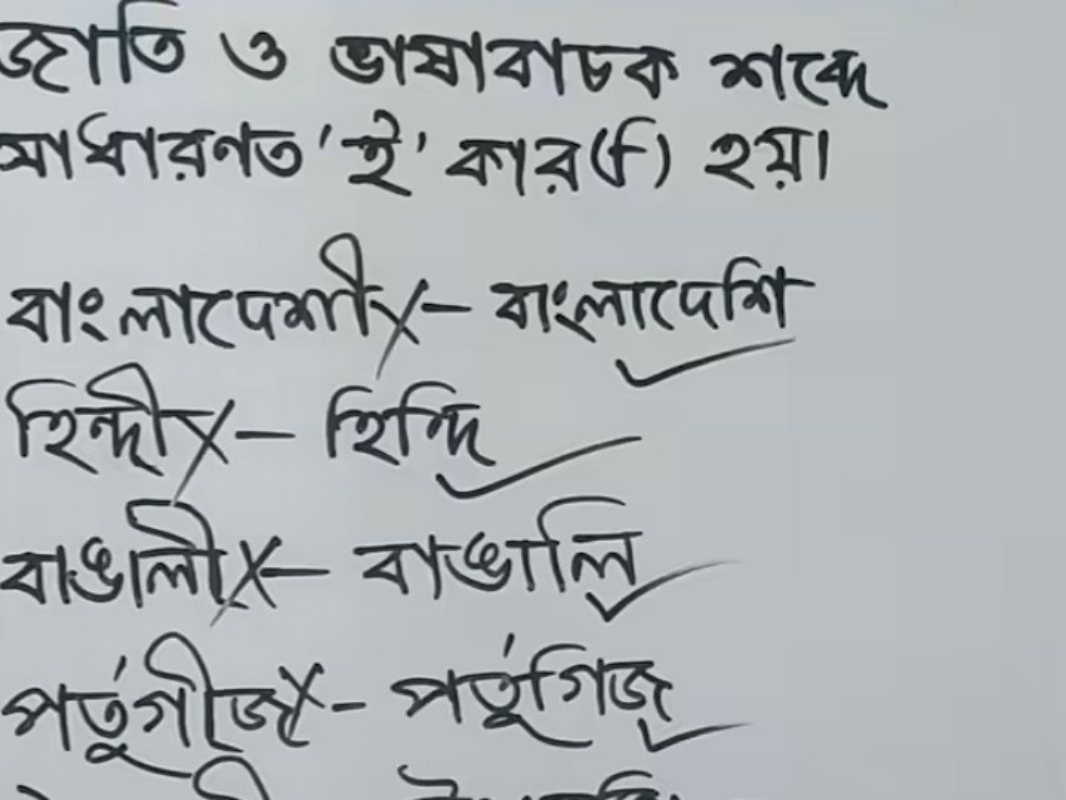 জাতি ও ভাষাবাচক শব্দে
সাধারণত 'ই' কার (ি) হয়।
বাংলাদেশী X – বাংলাদেশি ✓
হিন্দী X – হিন্দি ✓
বাঙালী X – বাঙালি ✓
পর্তুগীজ X – পর্তুগিজ ✓